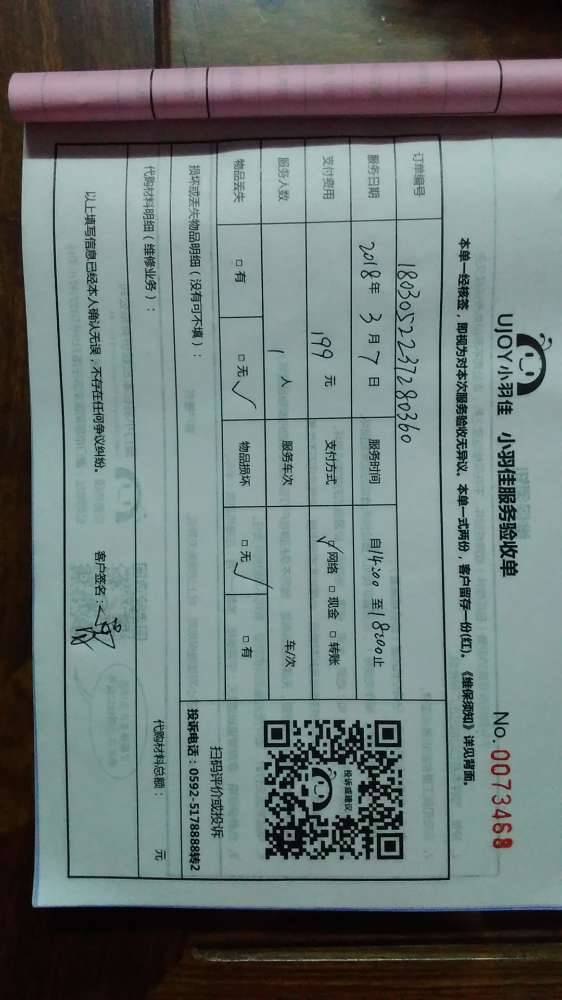 UJOY小羽佳 小羽佳服务验收单
No. 0073468
本单一经核签，即视为对本次服务验收无异议。本单一式两份，客户留存一份(红)。《维保须知》详见背面。
订单编号 1803052237280360
服务日期 2018年 3月 7日 服务时间 自14:00 至18:00止
支付费用 199 元 支付方式 ☑网络 □现金 □转账
服务人数 1 人 服务车次 车/次
物品丢失 □有 □无✓ 物品损坏 □无✓ □有
投诉或建议
扫码评价或投诉
投诉电话：0592-5178888转2
损坏或丢失物品明细（没有可不填）：
代购材料明细（维修业务）：
代购材料总额： 元
以上填写信息已经本人确认无误，不存在任何争议纠纷。
客户签名：